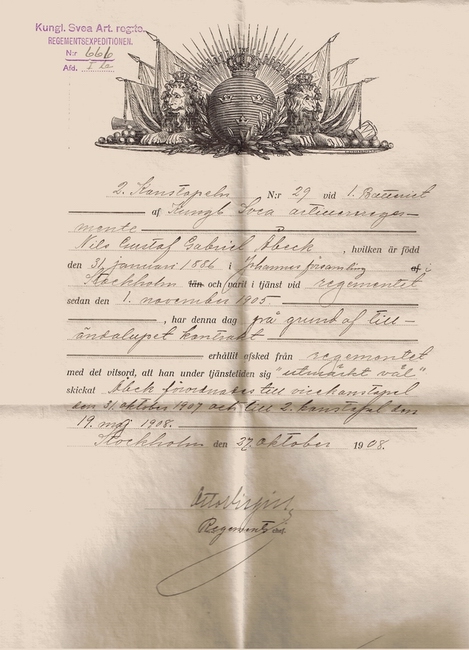 Kungl. Svea Art. reg:te.
REGEMENTSEXPEDITIONEN.
N:r 666
Afd. I
2. Konstapeln N:r 29 vid 1. Batteriet
af Kungl. Svea artillerirege-
mente
Nils Gustaf Gabriel Öbeck, hvilken är född
den 31 januari 1886 i Johannes församling
Stockholm län och varit i tjänst vid regementet
sedan den 1. november 1905
, har denna dag på grund af till-
ändalupet kontrakt
erhållit afsked från regementet
med det vitsord, att han under tjänstetiden sig "utmärkt väl"
skickat Öbeck förordnades till vicekonstapel
den 31 oktober 1907 och till 2. konstapel den
19. maj 1908.
Stockholm den 27 oktober 1908.
Otto Virgin